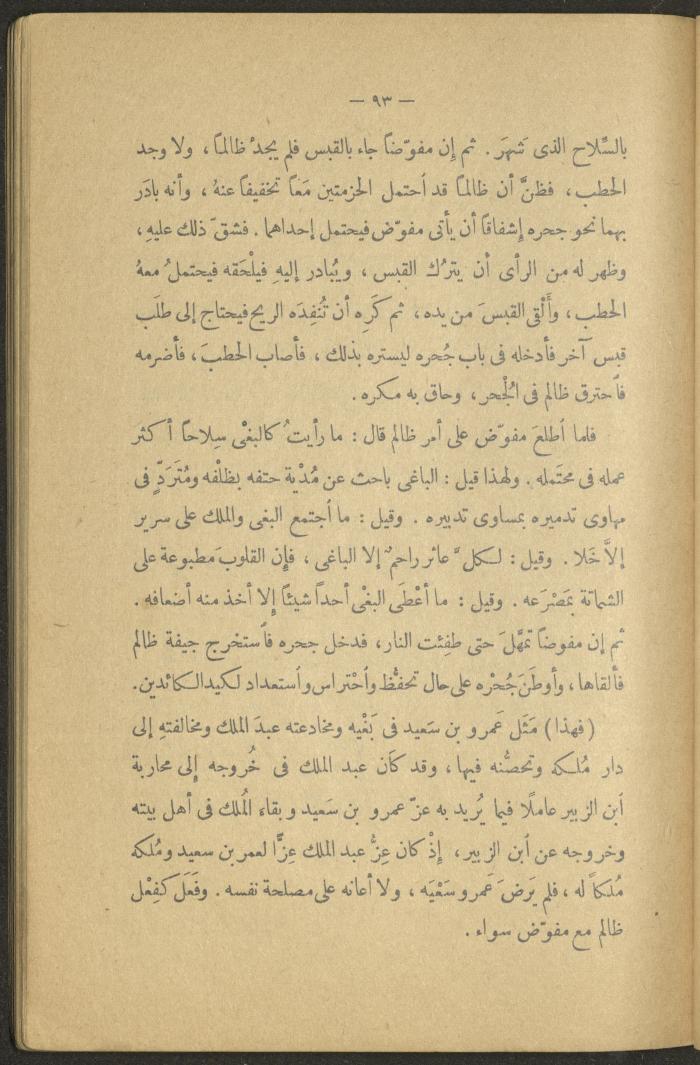 — ٩٣ —
بالسِّلاح الذى شَهَرَ . ثم إِن مفوّضاً جاء بالقبس فلم يجدْ ظالماً ، ولا وجد
الحطب ، فظنَّ أن ظالماً قد اُحتمل الحزمتين مَعاً تخفيفاً عنهُ ، وأنه بادَر
بهما نحو جحره إِشفاقاً أن يأتى مفوّض فيحتمل إحداهما . فشقّ ذلك عليهِ ،
وظهر له من الرأى أن يترُك القبس ، ويُبادر إليهِ فيلْحَقه فيحتملُ معهُ
الحطب ، وأَلْقى القبسَ من يده ، ثم كَرِه أن تُنْفِدَه الريح فيحتاج إلى طلَب
قبس آخر فأدخله فى باب جُحره ليستره بذلك ، فأصاب الحطبَ ، فأضرمه
فاُحترق ظالم فى الْجُحر ، وحاق به مكره .
فلما اُطلعَ مفوّض على أمر ظالم قال : ما رأيتُ كالبغْى سِلاحاً أكثر
عمله فى محتَمله . ولهذا قيل : الباغى باحث عن مُدْية حتفه بظلْفه ومُتَرَدٍّ فى
مهاوى تدميره بمساوى تدبيره . وقيل : ما اُجتمع البغى والملك على سرير
إلاَّ خَلا . وقيل : لكل عاثر راحمٌ إلا الباغى ، فإِن القلوبَ مطبوعة على
الشماتة بمَصْرَعه . وقيل : ما أعْطَى البغْى أحداً شيئاً إلا أخذ منه أضعافه .
ثم إن مفوضاً تمهَّلَ حتى طفِئت النار ، فدخل جحره فاُستخرج جيفة ظالم
فألقاها ، وأوطَنَ جُحْره على حال تحفُّظ واُحْتراس واُستعداد لكيد الكائدين.
( فهذا ) مَثَل عَمرو بن سَعيد فى بَغْيه ومخادعته عبدَ الملك ومخالفتهِ إلى
دار مُلكه وتحصُّنه فيها ، وقد كان عبد الملك فى خُروجه إلى محاربة
اُبن الزبير عاملًا فيما يُريد به عزّ عمرو بن سَعيد وبقاء الُملك فى أهل بيته
وخروجه عن اُبن الزبير ، إذْ كان عِزُّ عبد الملك عِزًّا لعمر بن سعيد ومُلكه
مُلكاً له ، فلم يَرضَ عَمرو سَعْيَه ، ولا أعانه على مصلحة نفسه . وفَعَل كفِعْل
ظالم مع مفوّض سواء .